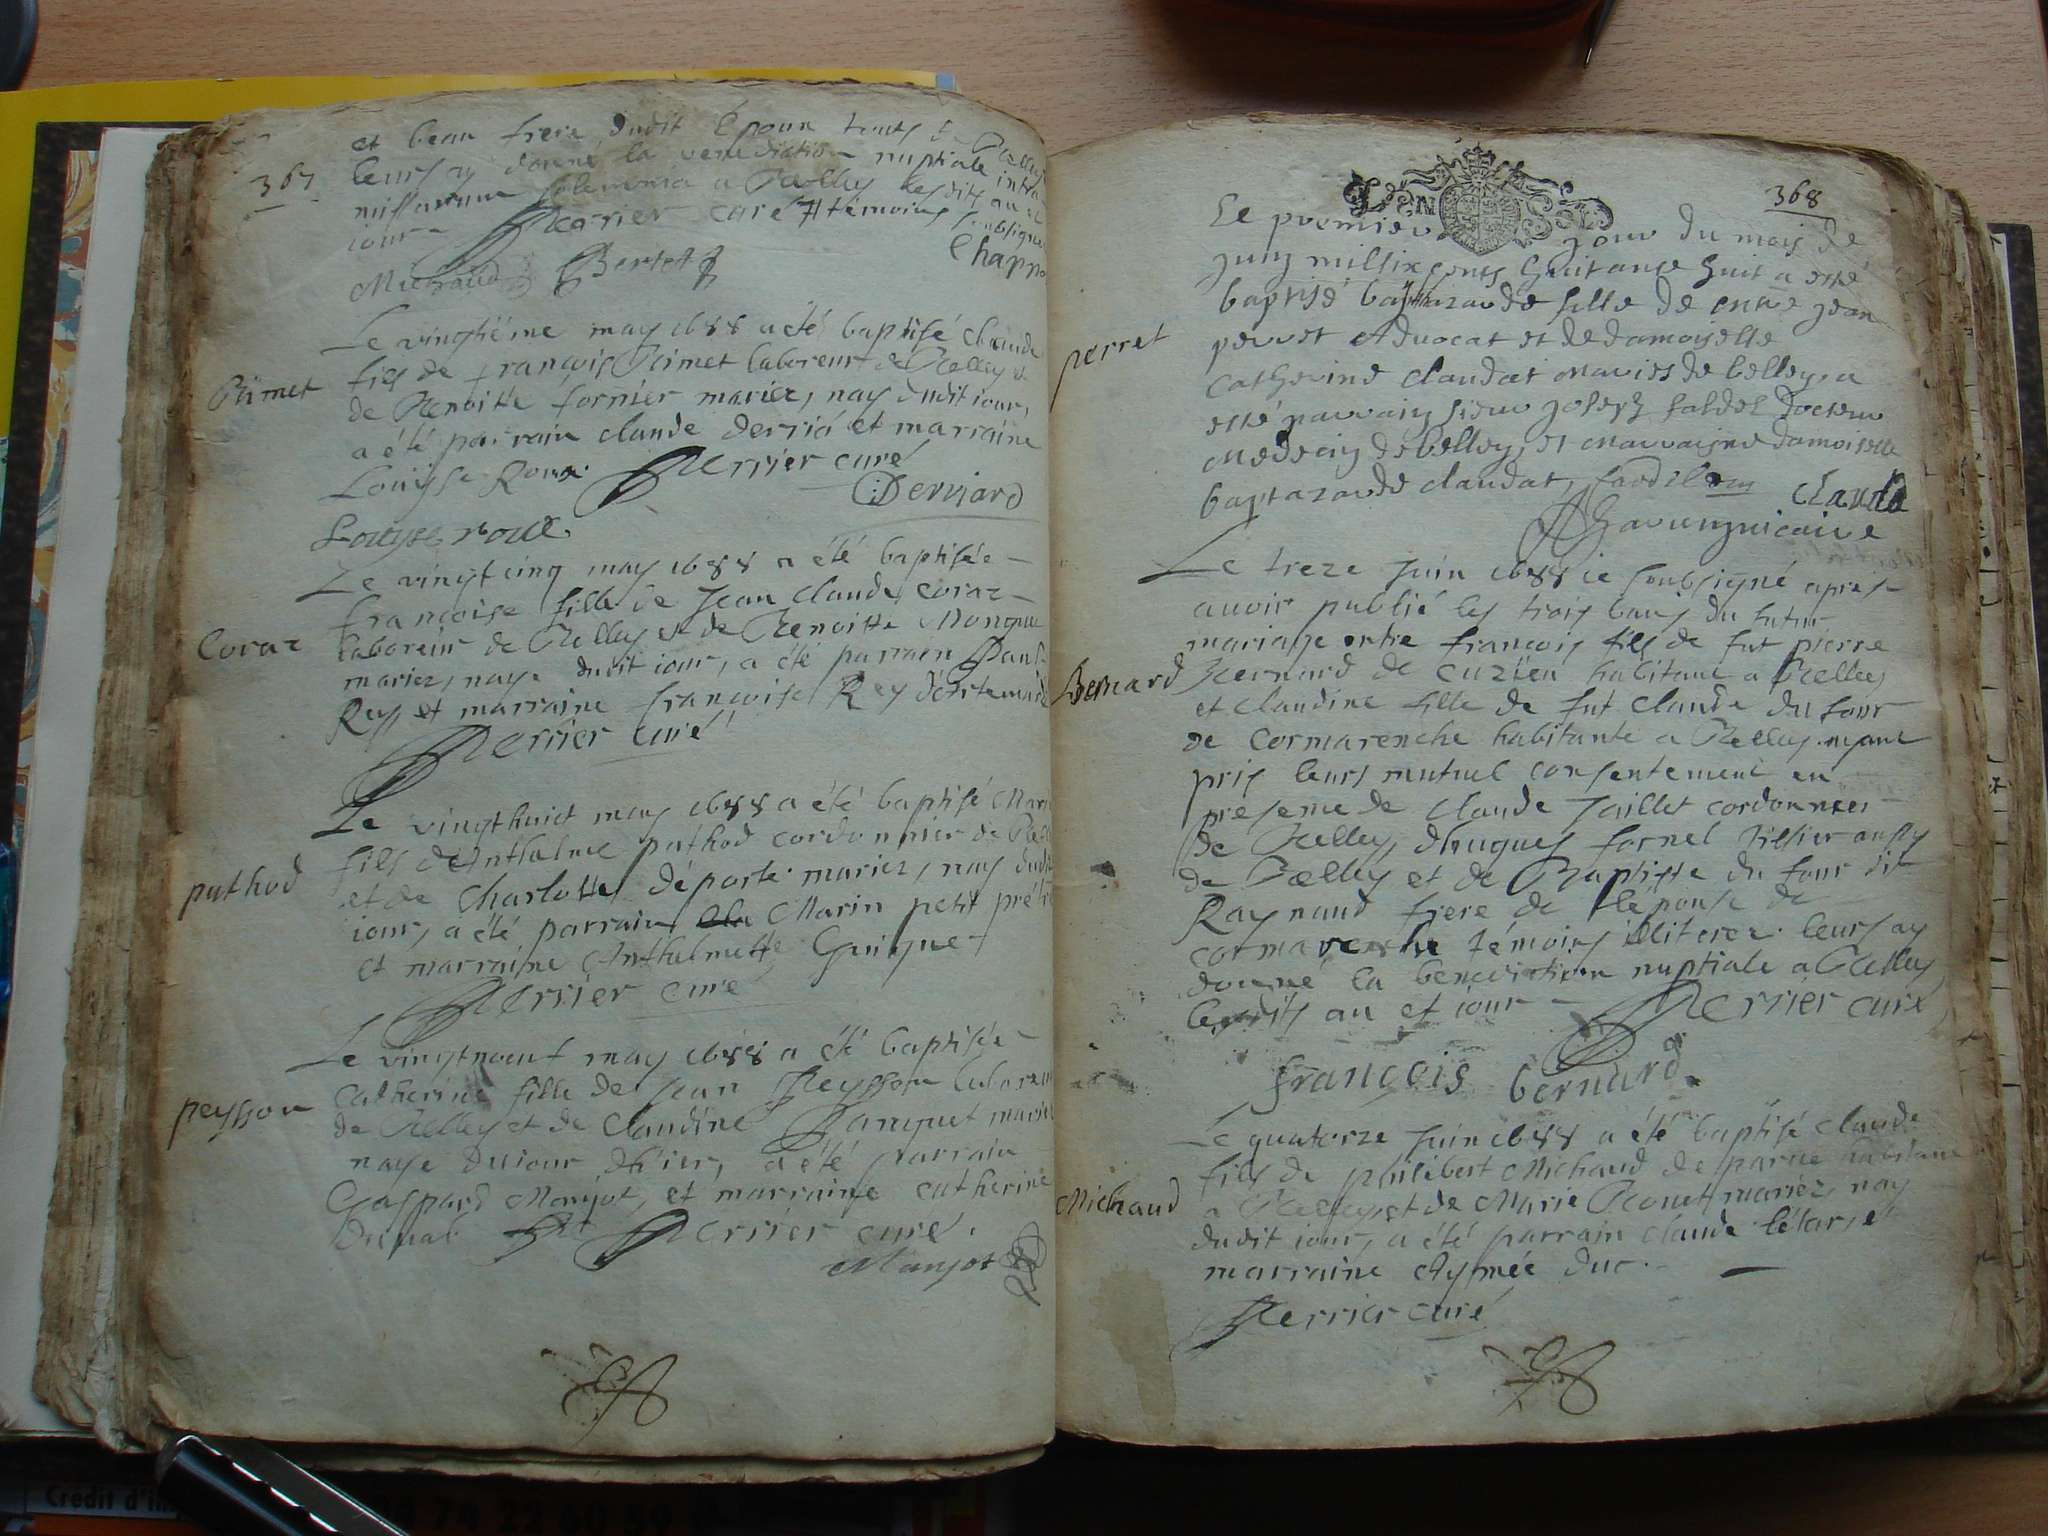 367
et beau frere dudit Epoux tous de Belley
leurs ay donné la benediction nuptiale intra
missarum solemnia a Belley lesdits an et
iour. Perrier curé # témoins soubsignez
Michaud Bertet Chapp
Le vingtiéme may 1688 a été baptisé claude
Rimet
fils de françois Rimet laboreur de Belley &
de Benoitte fornier mariez, nay dudit iour,
a été parrain claude derriá et marraine
Louyse Roux. Perrier curé
Derriard
Louyse roux
Le vingtcinq may 1688 a été baptisée
françoise fille de Jean claude coraz
Coraz
laboreur de Belley et de Benoitte Monque
mariez, naye dudit iour, a été parrain Paul
Rey et marraine françoise Rey d'Artemare
Perrier curé
Le vingthuict may 1688 a été baptisé Marin
puthod
fils d'Anthelme puthod cordonnier de Bell
et de Charlotte déporte mariez, nay dudit
iour, a été parrain Marin petit prétre
et marraine Anthelmette Guigue
Perrier curé
Le vingtneuf may 1688 a été baptisée
peysson
catherine fille de Jean Peysson laboreur
de Belley et de claudine Janquet mariez
naye du iour d'hier, a été parrain
Gaspard Monjot, et marraine catherine
Duval Perrier curé.
Manjot
368
Le premier jour du mois de
jung mil six cents huit ante huit a esté
baptisé baptazarde fille de mre jean
perret
perret Advocat et de damoiselle
Catherine claudat mariés de belley, a
esté parraing sieur joseph fardel docteur
medecing de belley, et marraigne damoiselle
baptazarde claudat, fardel claudа
Gavung vicaire
Le treze Juin 1688 ie soubsigné apres
auoir publié les trois bans du futur
mariage entre françois fils de fut pierre
Bernard
Bernard de cuzieu habitant a Belley
et claudine fille de fut claude du four
de cormarenche habitante a Belley ayant
pris leurs mutuel consentement en
presence de claude Jaillet cordonnier
de Belley, d'hugues fornel tissier aussy
de Belley et de Baptiste du four dit
Raynaud frere de l'épouse de
cormarenche témoins illiterez. leurs ay
donné la benediction nuptiale a Belley
lesdits an et iour Perrier curé
françois bernard
Le quatorze Juin 1688 a été baptisé claude
fils de philibert Michaud de parue habitant
Michaud
a Belley et de Marie Bonet mariez, nay
dudit iour, a été parrain claude létarse
marraine Aymée duc.
Perrier curé
Crédit d'im
74 22 60 59